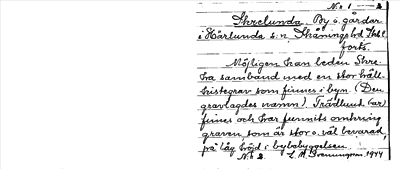 No 1 — 2
Skrelunda. By o. gårdar
i Härlunda s:n Skånings hd Skbl.
forts.
Möjligen kan leden Skre-
ha samband med en stor häll-
kistegrav som finnes i byn (Den
gravlagdes namn). Trädlund (ar)
finnes och har funnits omkring
graven som är stor o. väl bevarad,
på låg höjd i bybebyggelsen.
No 2. L. M. Svenungsson 1944